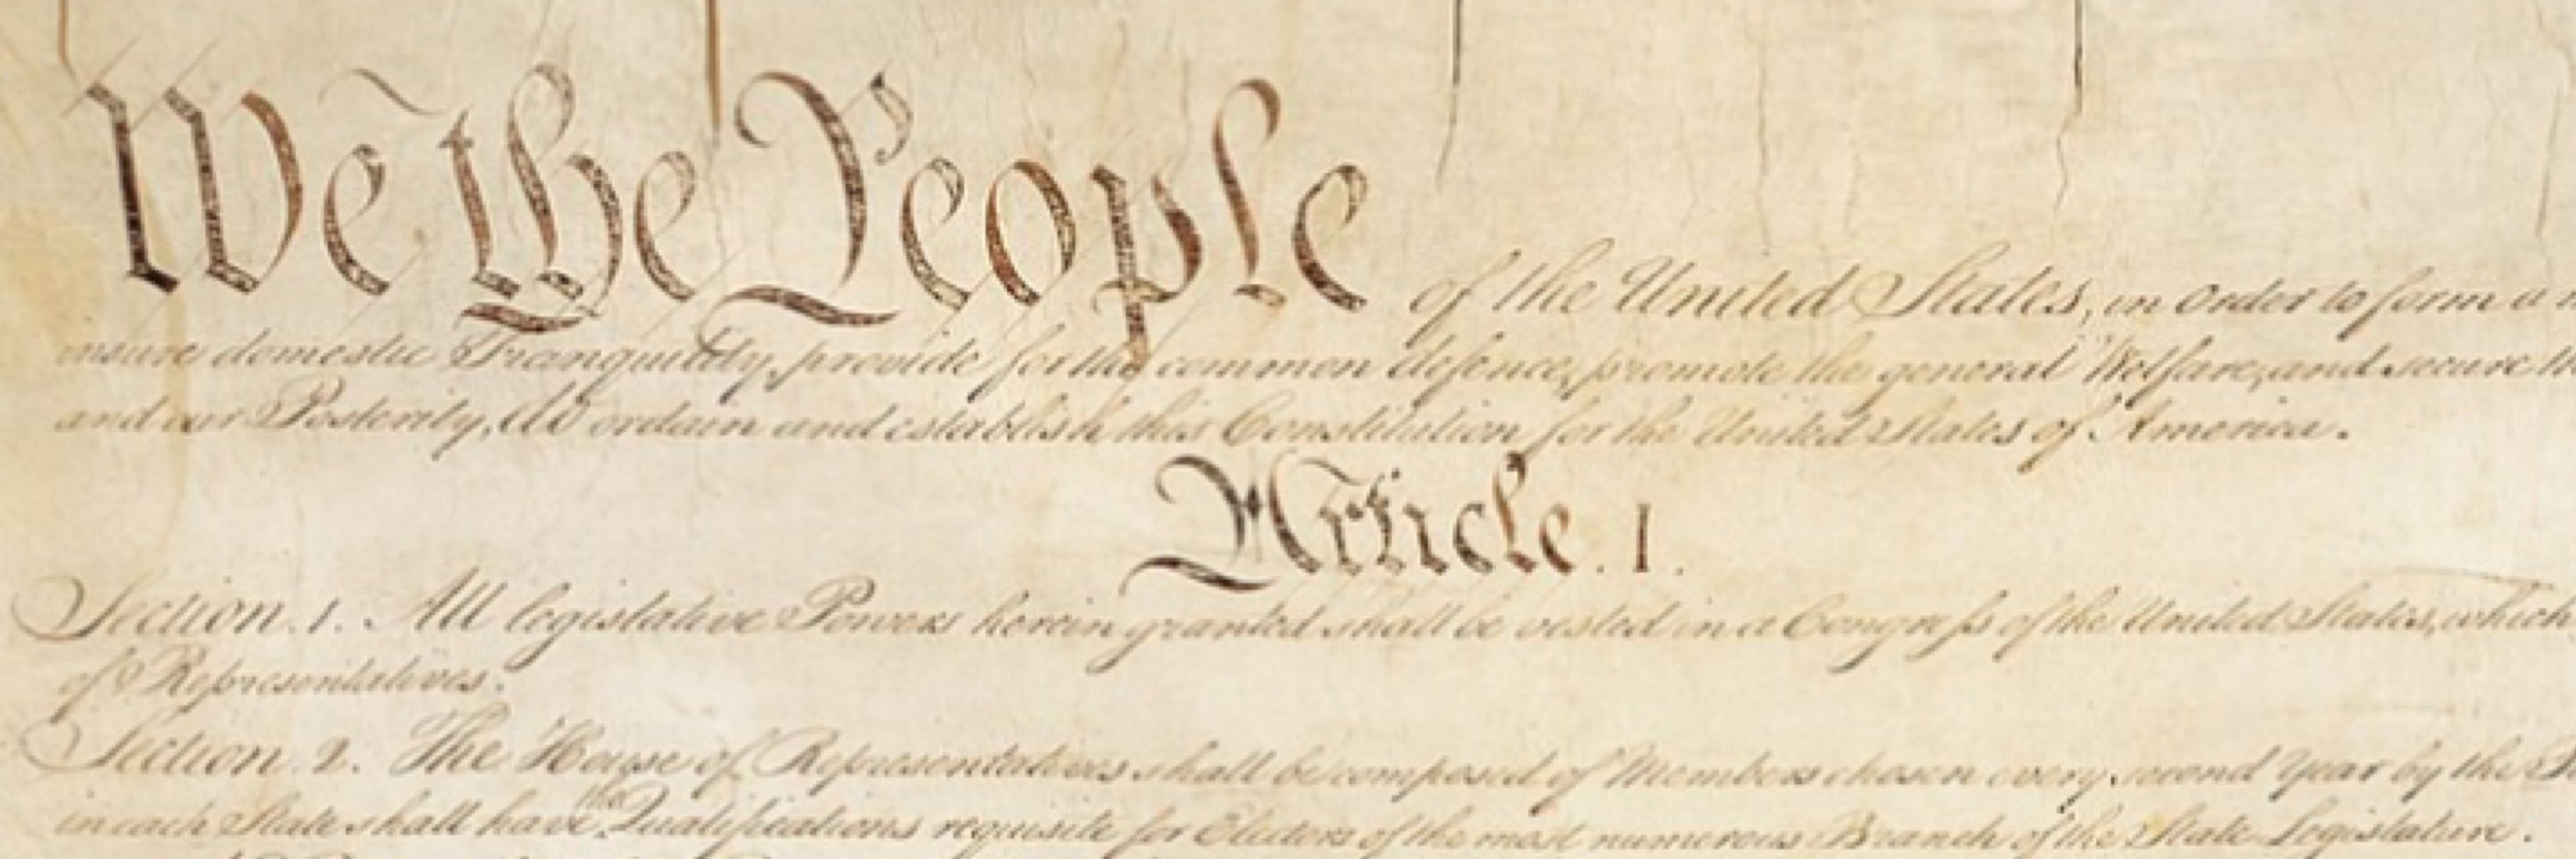 We the People of the United States, in Order to form a
insure domestic Tranquility, provide for the common defence, promote the general Welfare, and secure
and our Posterity, do ordain and establish this Constitution for the United States of America.
Article. I.
Section. 1. All legislative Powers herein granted shall be vested in a Congress of the United States, which
of Representatives.
Section. 2. The House of Representatives shall be composed of Members chosen every second Year by the
in each State shall have the Qualifications requisite for Electors of the most numerous Branch of the State Legislature.